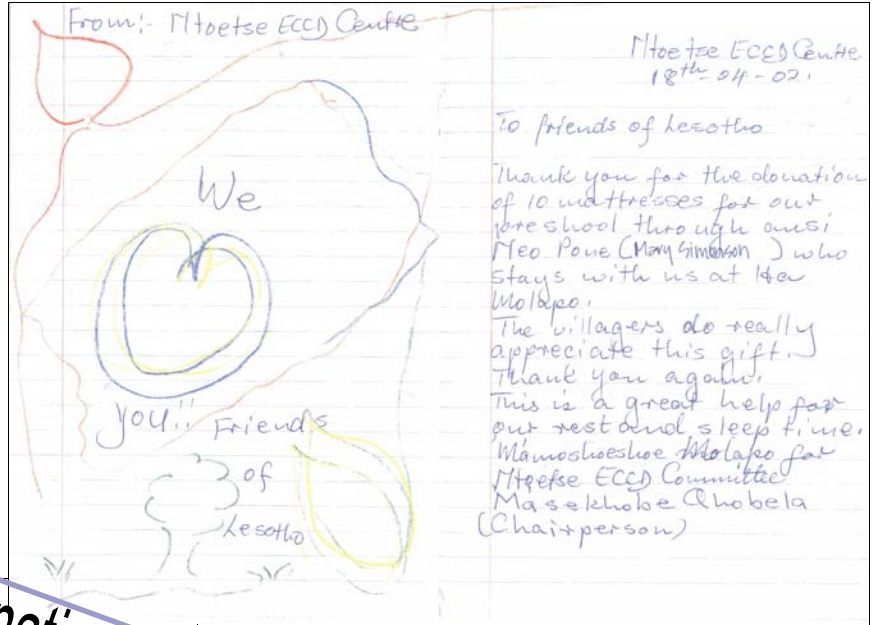 From:- Mtoetse ECCD Centre
We
you!! Friends
of
Lesotho
Mtoetse ECCD Centre
18th-04-02.
To friends of Lesotho
Thank you for the donation
of 10 mattresses for our
preshool through ausi
Meo Pone (Mary Simonson) who
stays with us at Ha
Molapo.
The villagers do really
appreciate this gift.
Thank you again.
This is a great help for
our rest and sleep time.
Mamoshoeshoe Molapo for
Mtoetse ECCD Committee
Masekhobe Qhobela
(Chairperson)